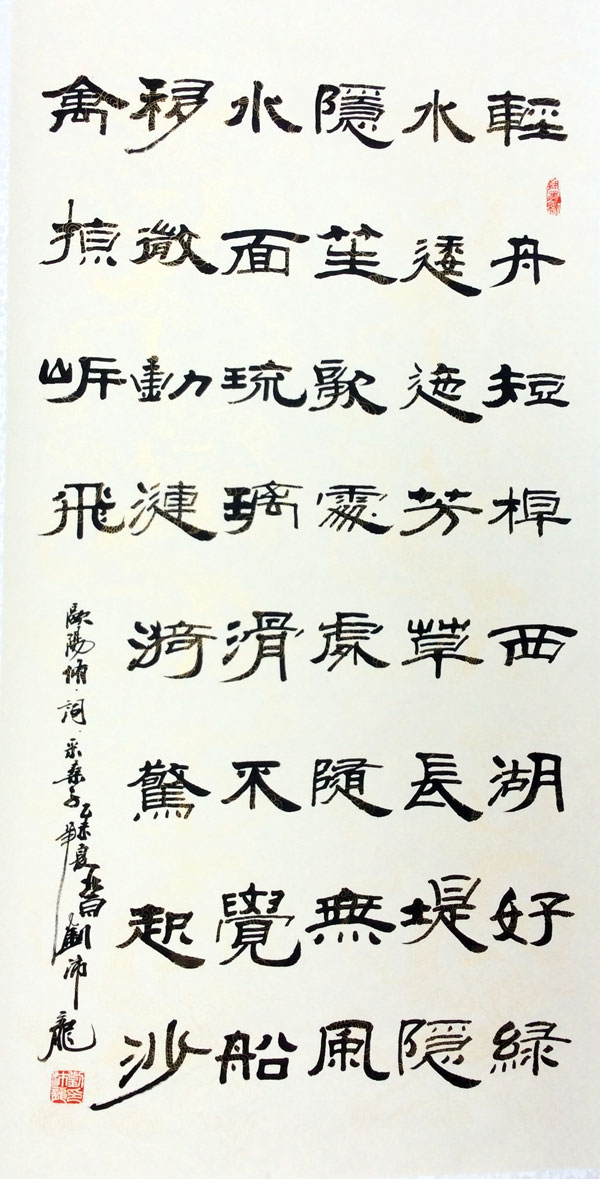 輕舟短棹西湖好綠
水逶迤芳草長堤隱
隱笙歌處處隨無風
水面琉璃滑不覺船
移微動漣漪驚起沙
禽掠岸飛
歐陽脩詞采桑子乙未夏 劉沛龍